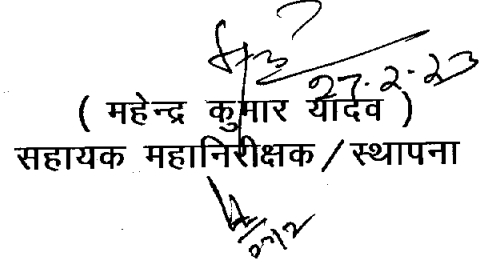 27.2.23
( महेन्द्र कुमार यादव )
सहायक महानिरीक्षक / स्थापना